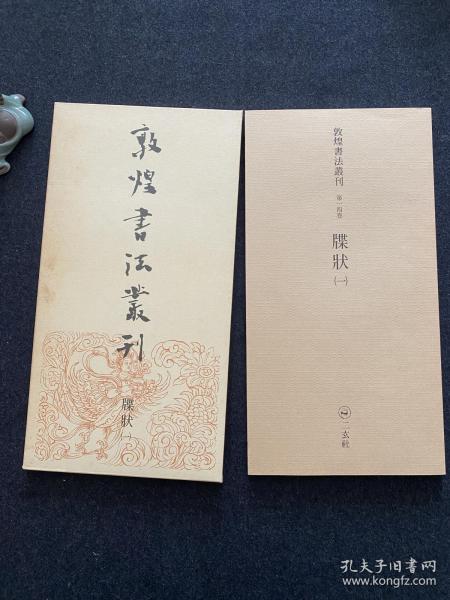 敦煌書法叢刊
牒狀㈠
敦煌書法叢刊
第一四卷
牒狀㈠
二玄社
孔夫子旧书网
www.kongfz.com